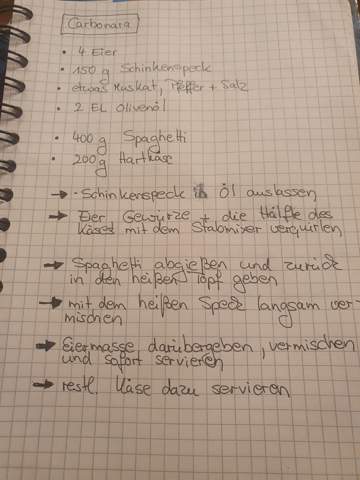 Carbonara
• 4 Eier
• 150 g Schinkenspeck
• etwas Muskat, Pfeffer + Salz
• 2 EL Olivenöl
• 400g Spaghetti
• 200g Hartkäse
→ Schinkenspeck in Öl auslassen
→ Eier, Gewürze + die Hälfte des
Käses mit dem Stabmixer verquirlen
→ Spaghetti abgießen und zurück
in den heißen Topf geben
→ mit dem heißen Speck langsam ver-
mischen
→ Eiermasse darübergeben, vermischen
und sofort servieren
→ restl. Käse dazu servieren